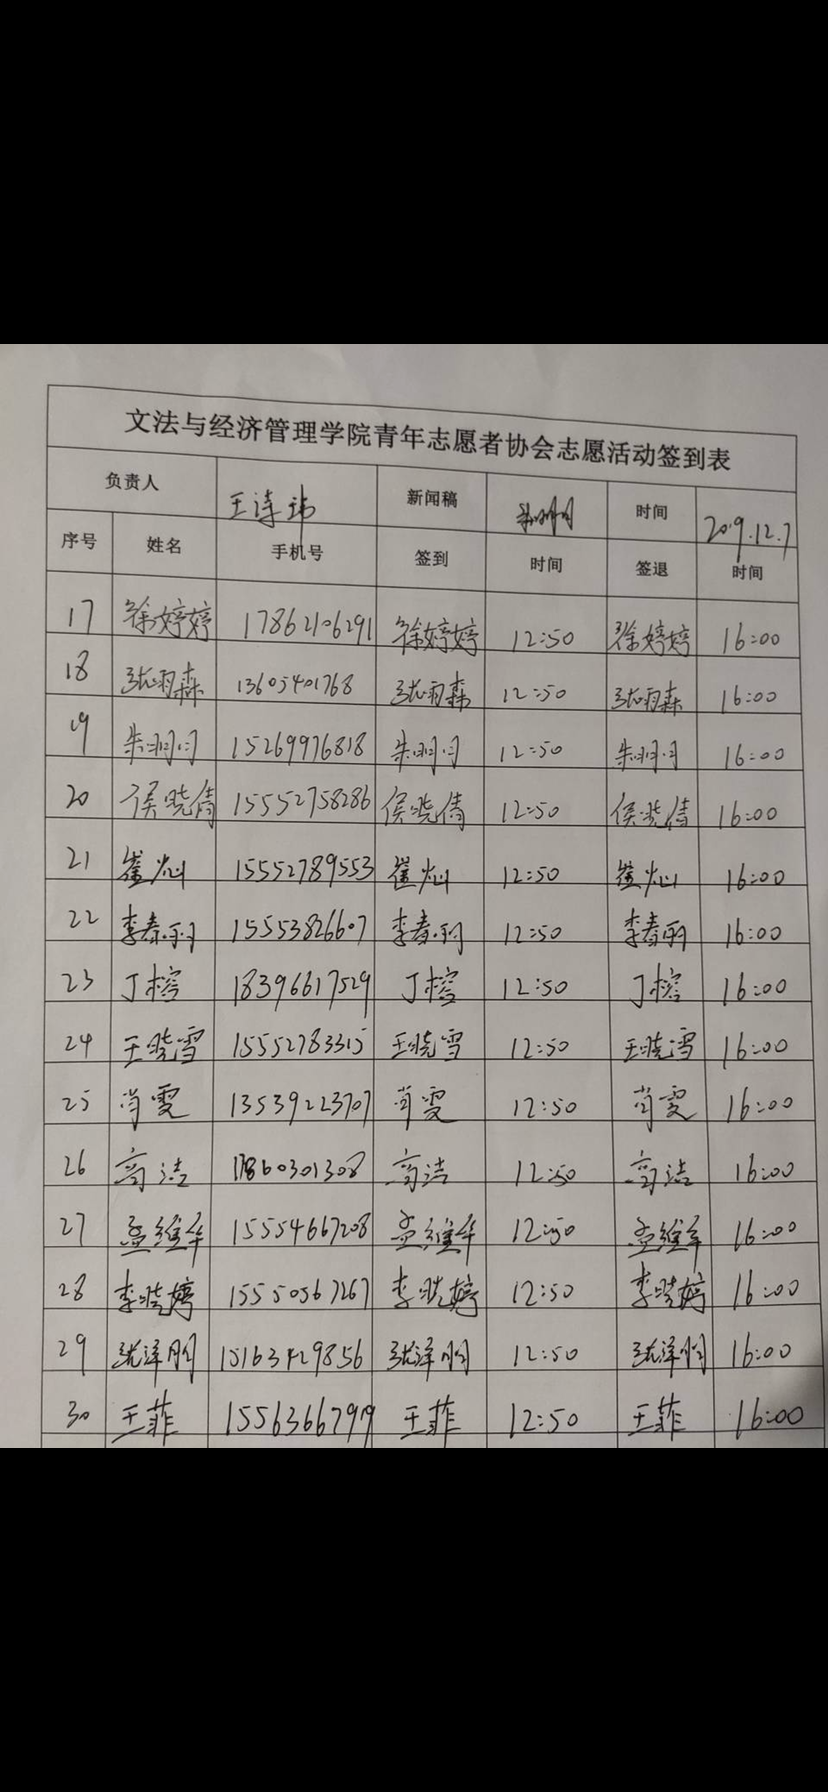 文法与经济管理学院青年志愿者协会志愿活动签到表
负责人 新闻稿 时间 2019.12.7
序号 姓名 手机号 签到 时间 签退 时间
17 徐婷婷 17862106291 徐婷婷 12:50 徐婷婷 16:00
18 张雨森 13605401768 张雨森 12:50 张雨森 16:00
19 朱明月 15269976818 朱明月 12:50 朱明月 16:00
20 侯晓倩 15552758286 侯晓倩 12:50 侯晓倩 16:00
21 崔灿 15552789553 崔灿 12:50 崔灿 16:00
22 李春丽 15553826607 李春丽 12:50 李春丽 16:00
23 丁榕 18396617529 丁榕 12:50 丁榕 16:00
24 王晓雪 15552783315 王晓雪 12:50 王晓雪 16:00
25 肖雯 13539223707 肖雯 12:50 肖雯 16:00
26 高洁 17860301308 高洁 12:50 高洁 16:00
27 孟维华 15554667208 孟维华 12:50 孟维华 16:00
28 李晓婷 15550567267 李晓婷 12:50 李晓婷 16:00
29 张泽明 15163429856 张泽明 12:50 张泽明 16:00
30 王菲 15563667919 王菲 12:50 王菲 16:00